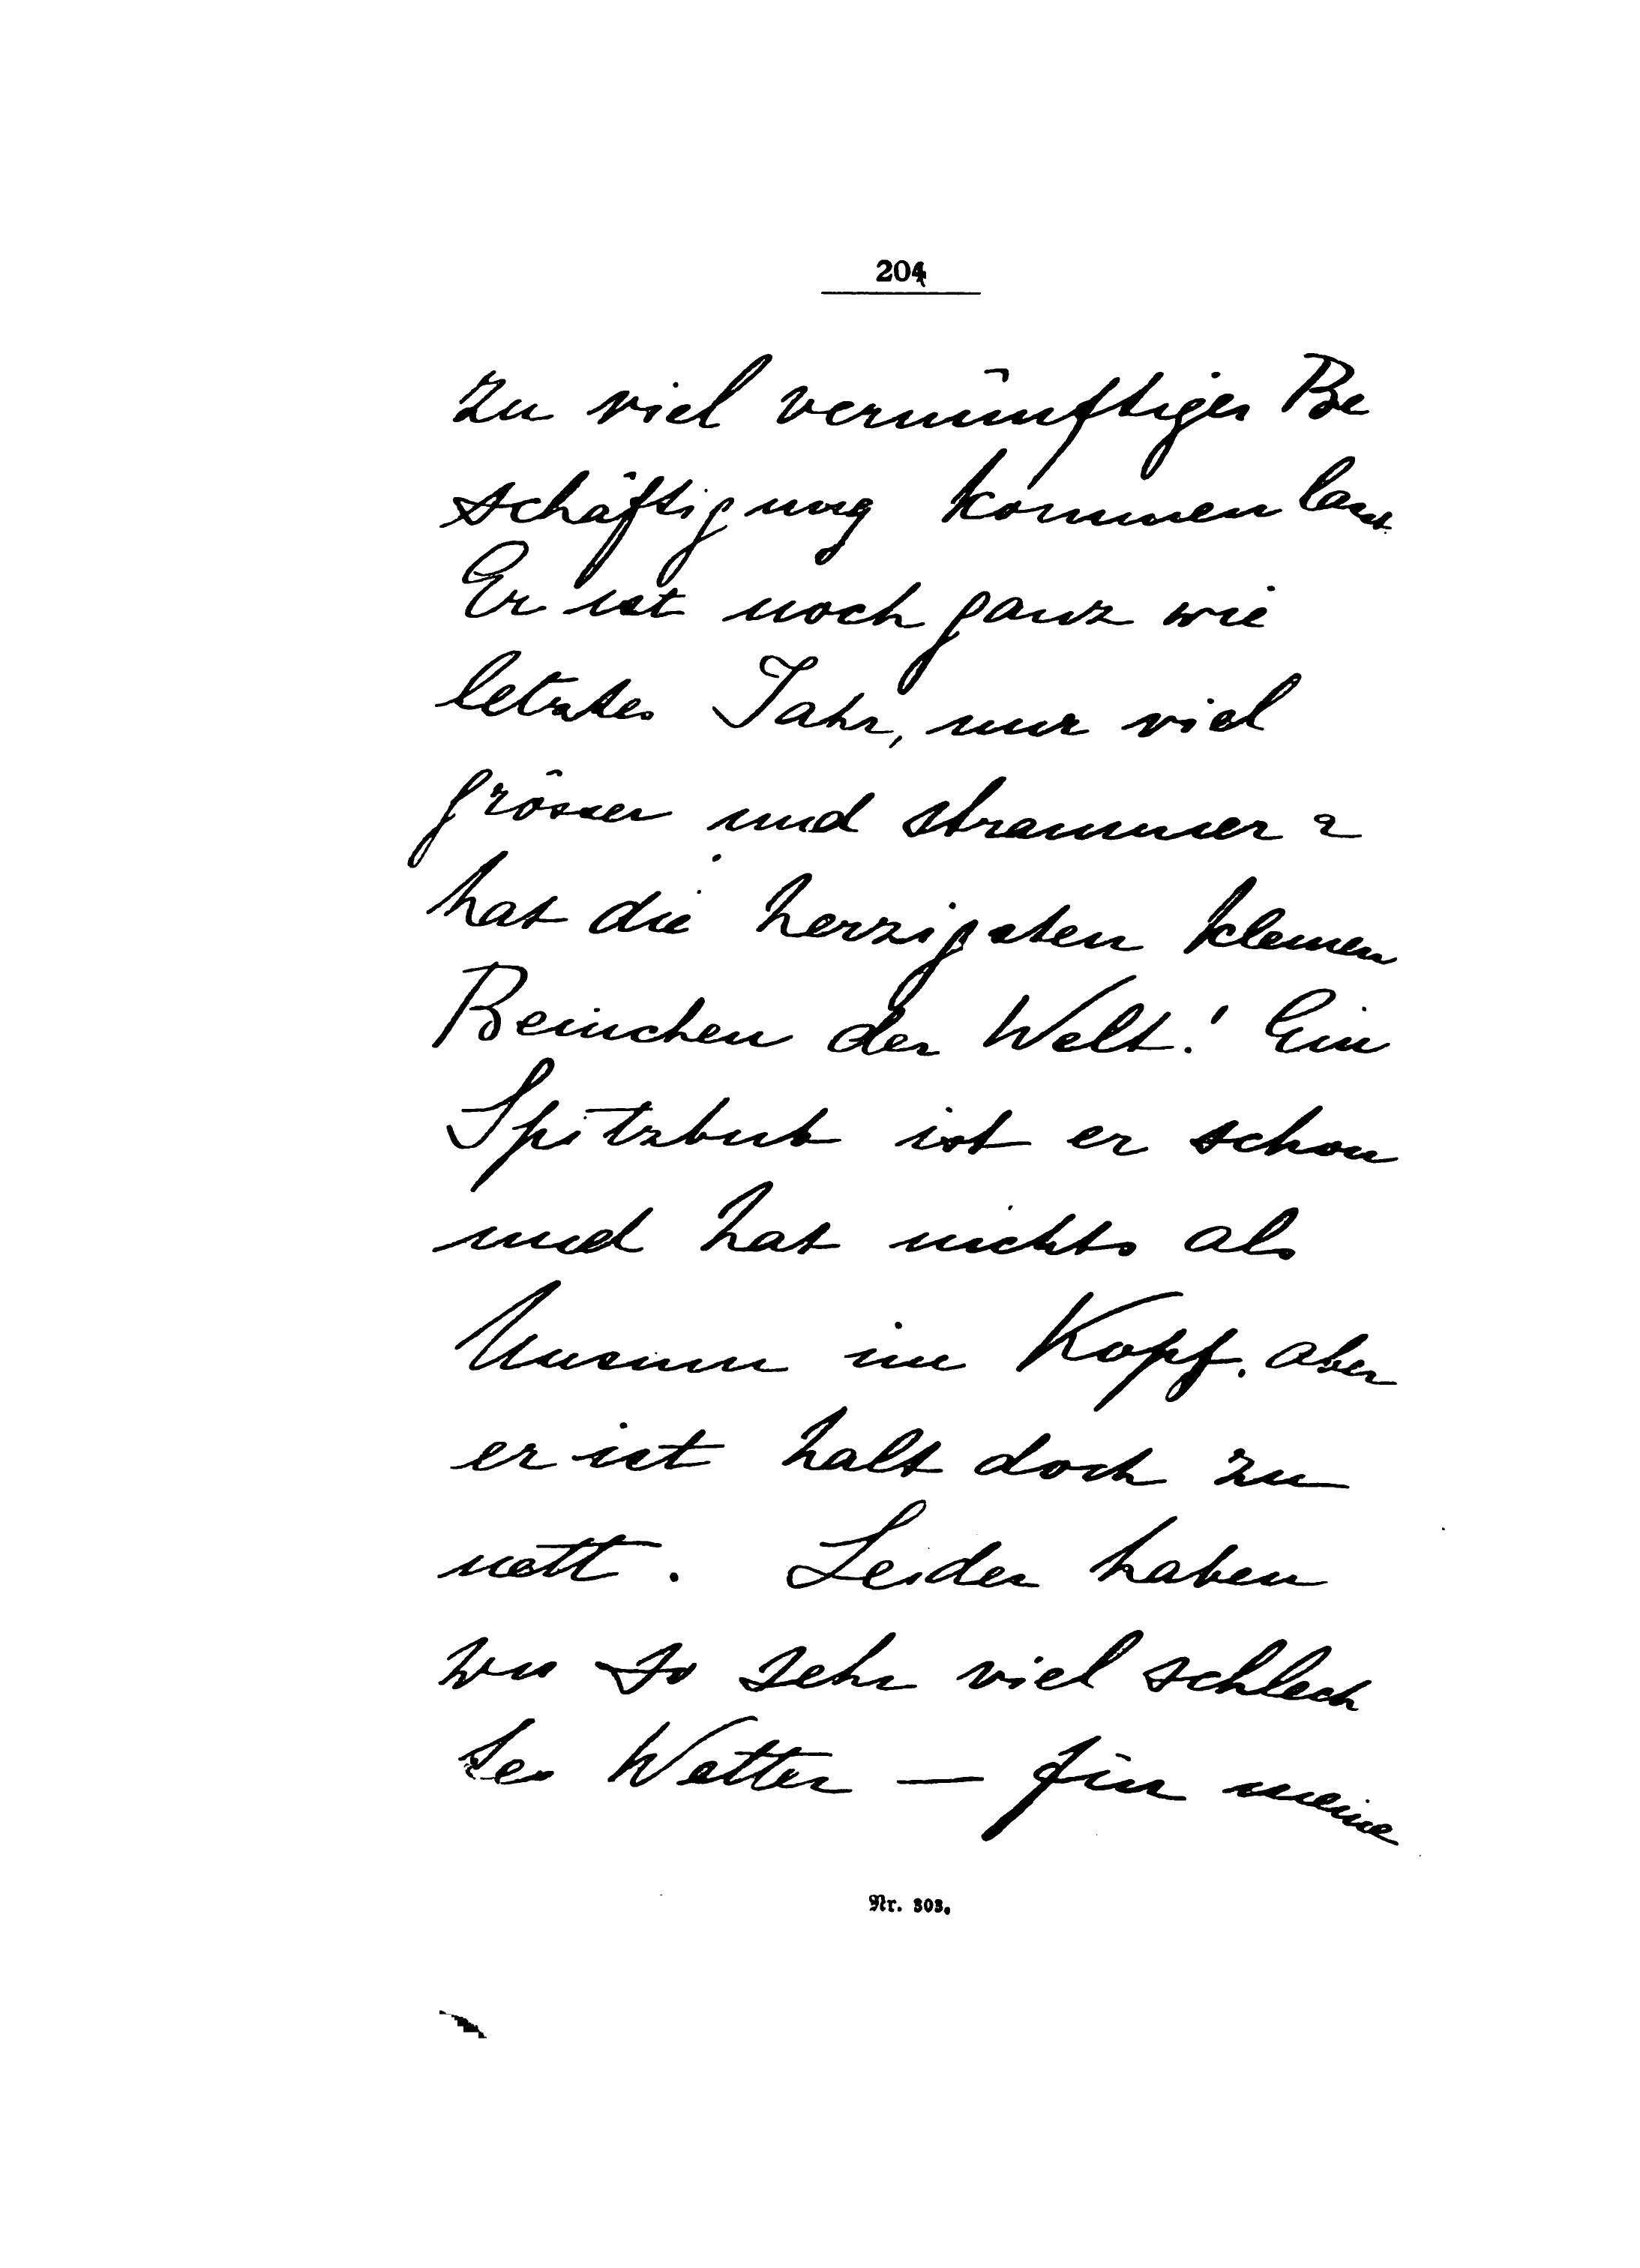 204
zu viel vernünftiger Be
schäftigung kommen lässt
Er ist noch ganz wie
letztes Jahr, nur viel
grösser und strammer &
hat die herzigsten kleinen
Beinchen der Welt! Ein
Spitzbub ist er schon
und hat nichts als
Unsinn im Kopf. aber
er ist halt doch zu
nett. Leider haben
wir so sehr viel schlech
tes Wetter — für meine
Nr. 303.